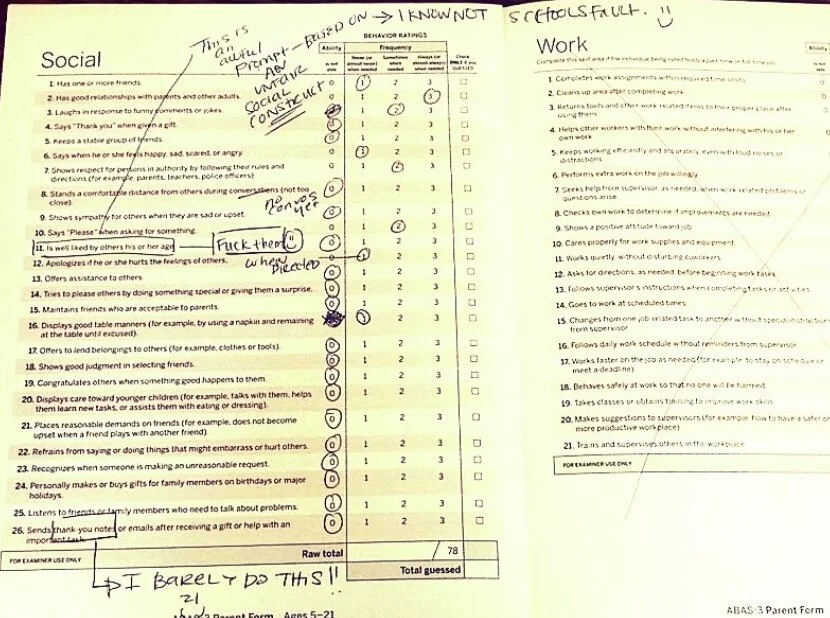 This is an awful Prompt - BASED ON → I KNOW NOT SCHOOLS FAULT. :)
AN UNFAIR SOCIAL CONSTRUCT
Social
BEHAVIOR RATINGS
Ability
Frequency
Is not able
Never (or almost never) when needed
Sometimes when needed
Always (or almost always) when needed
Check ONLY if you GUESSED
1. Has one or more friends. 0 1 2 3
2. Has good relationships with parents and other adults. 0 1 2 3
3. Laughs in response to funny comments or jokes. 1 2 3
4. Says "Thank you" when given a gift. 0 1 2 3
5. Keeps a stable group of friends. 0 1 2 3
6. Says when he or she feels happy, sad, scared, or angry. 0 1 2 3
7. Shows respect for persons in authority by following their rules and
directions (for example, parents, teachers, police officers). 0 1 2 3
8. Stands a comfortable distance from others during conversations (not too
close). 0 1 2 3
no convos yet
9. Shows sympathy for others when they are sad or upset. 0 1 2 3
10. Says "Please" when asking for something. 0 1 2 3
11. Is well liked by others his or her age 0 1 2 3
Fuck them :)
12. Apologizes if he or she hurts the feelings of others. 0 1 2 3
when DIRECTED
13. Offers assistance to others. 0 1 2 3
14. Tries to please others by doing something special or giving them a surprise. 0 1 2 3
15. Maintains friends who are acceptable to parents. 0 1 2 3
16. Displays good table manners (for example, by using a napkin and remaining
at the table until excused). 1 2 3
17. Offers to lend belongings to others (for example, clothes or tools). 0 1 2 3
18. Shows good judgment in selecting friends. 0 1 2 3
19. Congratulates others when something good happens to them. 0 1 2 3
20. Displays care toward younger children (for example, talks with them, helps
them learn new tasks, or assists them with eating or dressing). 0 1 2 3
21. Places reasonable demands on friends (for example, does not become
upset when a friend plays with another friend). 0 1 2 3
22. Refrains from saying or doing things that might embarrass or hurt others. 0 1 2 3
23. Recognizes when someone is making an unreasonable request. 0 1 2 3
24. Personally makes or buys gifts for family members on birthdays or major
holidays. 0 1 2 3
25. Listens to friends or family members who need to talk about problems. 0 1 2 3
26. Sends thank-you notes or emails after receiving a gift or help with an
important task. 0 1 2 3
FOR EXAMINER USE ONLY
Raw total / 78
Total guessed
I BARELY DO THIS!!
21
ABAS-3 Parent Form Ages 5–21
Work
Ability
1. Completes work assignments within required time limits.
2. Cleans up area after completing work.
3. Returns tools and other work related items to their proper place after
using them.
4. Helps other workers with their work without interfering with his or her
own work
5. Keeps working efficiently and accurately, even with loud noises or
distractions.
6. Performs extra work on the job willingly.
7. Seeks help from supervisor, as needed, when work related problems or
questions arise
8. Checks own work to determine if improvements are needed.
9. Shows a positive attitude toward job.
10. Cares properly for work supplies and equipment
11. Works quietly, without disturbing coworkers.
12. Asks for directions, as needed, before beginning work tasks.
13. Follows supervisor's instructions when completing tasks or activities.
14. Goes to work at scheduled times.
15. Changes from one job related task to another without special
from supervisor.
16. Follows daily work schedule without reminders from supervisor
17. Works faster on the job as needed (for example to stay on schedule or
meet a deadline)
18. Behaves safely at work so that no one will be harmed.
19. Takes classes or obtains training to improve work skills.
20. Makes suggestions to supervisors (for example how to have a safer or
more productive workplace)
21. Trains and supervises others in the workplace.
FOR EXAMINER USE ONLY
ABAS-3 Parent Form